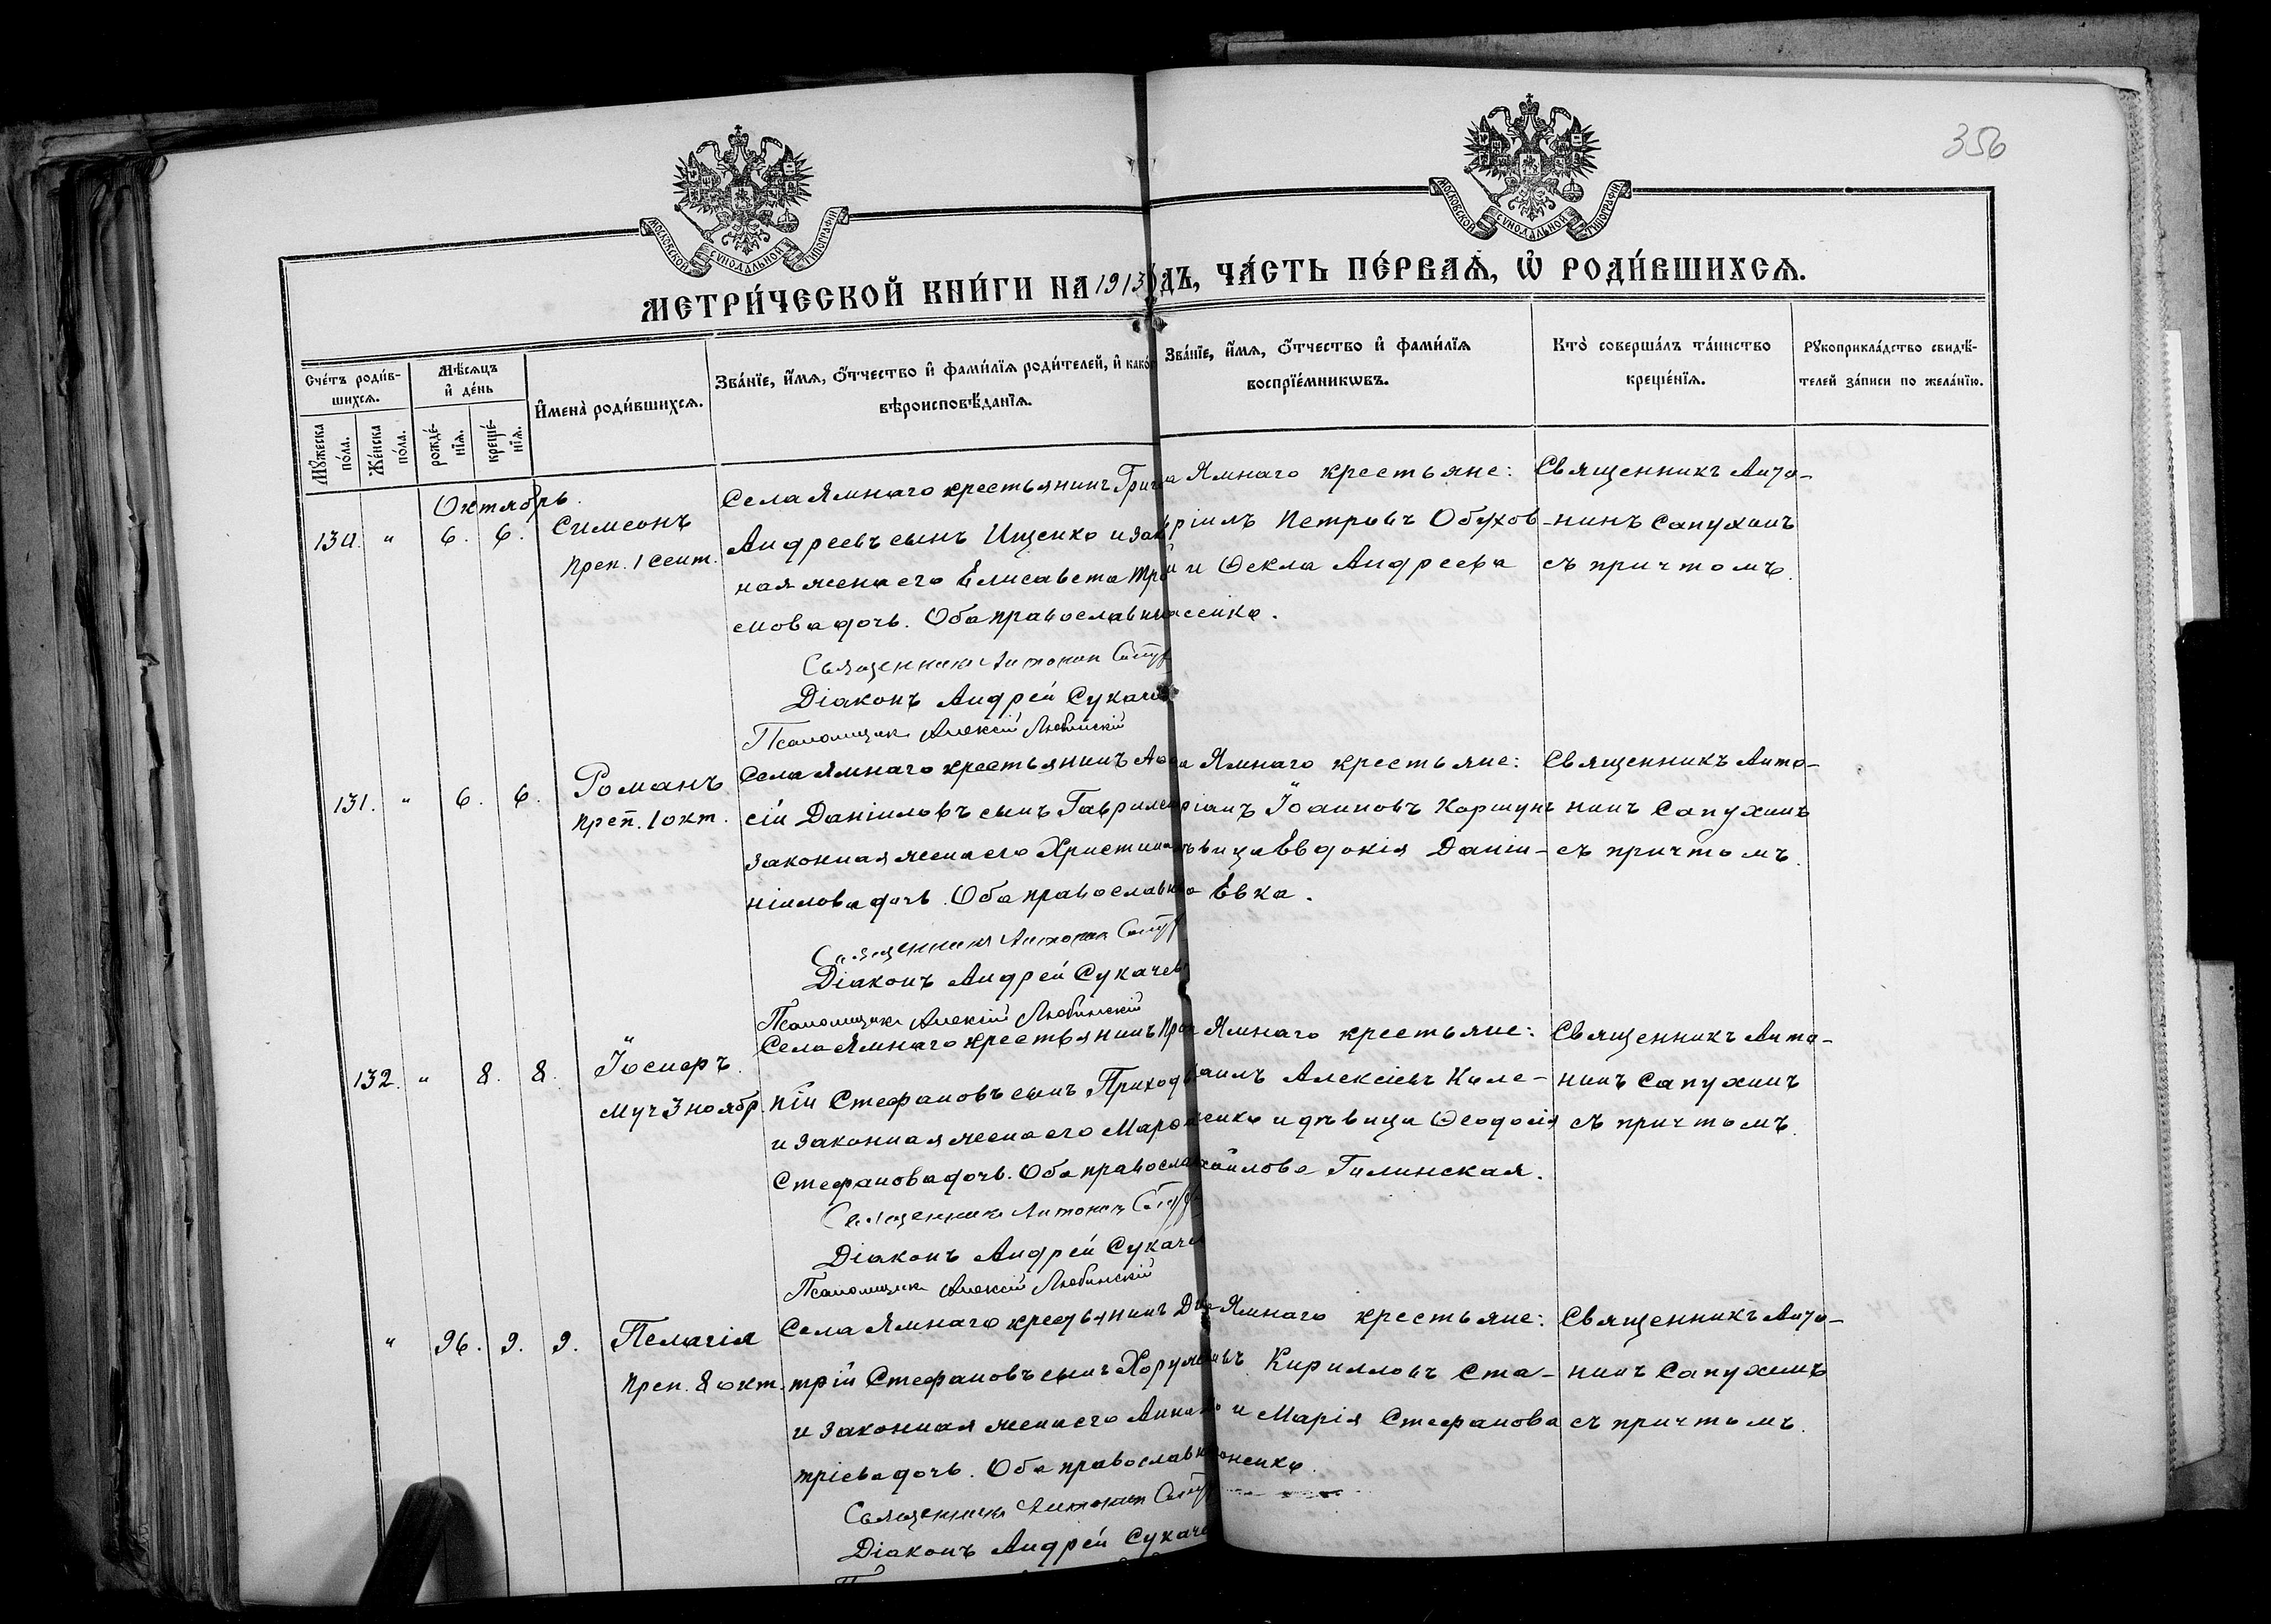 356
МОСКОВСКОЙ СѴНОДАЛЬНОЙ ТИПОГРАФІИ
МОСКОВСКОЙ СѴНОДАЛЬНОЙ ТИПОГРАФІИ
МЕТРИ́ЧЕСКОЙ КНИ́ГИ НА 1913 ДЪ, ЧА́СТЬ ПЕ́РВАѦ, Ѡ҆ РОДИ́ВШИХСѦ.
Сче́тъ роди́вшихсѧ.
Мꙋ́жеска по́ла.
Же́нска по́ла.
Мѣ́сѧцъ и҆ де́нь
рожде́нїѧ.
креще́нїѧ.
И҆мена̀ роди́вшихсѧ.
Зва́нїе, и҆́мѧ, ѻ҆́тчество и҆ фами́лїѧ роди́телей, и҆ како́
вѣроисповѣ́данїѧ.
Зва́нїе, и҆́мѧ, ѻ҆́тчество и҆ фами́лїѧ
воспрїе́мникѡвъ.
Кто̀ соверша́лъ та́инство
креще́нїѧ.
Рꙋкоприкла́дство свидѣ́-
телей за́писи по жела́нїю.
Октябрь.
130. " 6. 6. Симеонъ
Преп. 1 сент.
Села Ямнаго крестьянинъ
Андреевъ сынъ Ищенко и
ная жена его Елисавета
мова дочь. Оба православн
Священникъ Антонин
Діаконъ Андрей Сукаче
Псаломщикъ Алексій Любинскій
Ямнаго крестьяне:
ріилъ Петровъ Обухов-
и Ѳекла Андреева
сенко.
Священникъ Анто-
нинъ Сапухинъ
съ причтомъ.
131. " 6. 6. Романъ
преп. 1 окт.
Села Ямнаго крестьянинъ
сій Даніиловъ сынъ
законная жена его Христина
ніилова дочь. Оба православн
Священникъ Антонин
Діаконъ Андрей Сукачев
Псаломщикъ Алексій Любинскій
Ямнаго крестьяне:
Іоанновъ Коршунъ
Евдокія Даніи-
Евка.
Священникъ Анто-
нинъ Сапухинъ
съ причтомъ.
132. " 8. 8. Іосифъ.
Муч 3 ноябр.
Села Ямнаго крестьянинъ
пій Стефановъ сынъ Приход
и законная жена его
Стефанова дочь. Оба правосла
Священникъ Антонин
Діаконъ Андрей Сукаче
Псаломщикъ Алексій Любинскій
Ямнаго крестьяне:
аилъ Алексіевъ
сенко и дѣвица Ѳеодосія
хаилова Гилинская.
Священникъ Анто-
нинъ Сапухинъ
съ причтомъ.
" 96. 9. 9. Пелагія
Преп. 8 окт.
Села Ямнаго крестьянинъ Ди
трій Стефановъ сынъ
и законная жена его Анна
тріева дочь. Оба православн
Священникъ Антонин
Діаконъ Андрей Сукаче
Ямнаго крестьяне:
Кирилловъ Ста-
и Марія Стефанова
ненко.
Священникъ Анто-
нинъ Сапухинъ
съ причтомъ.